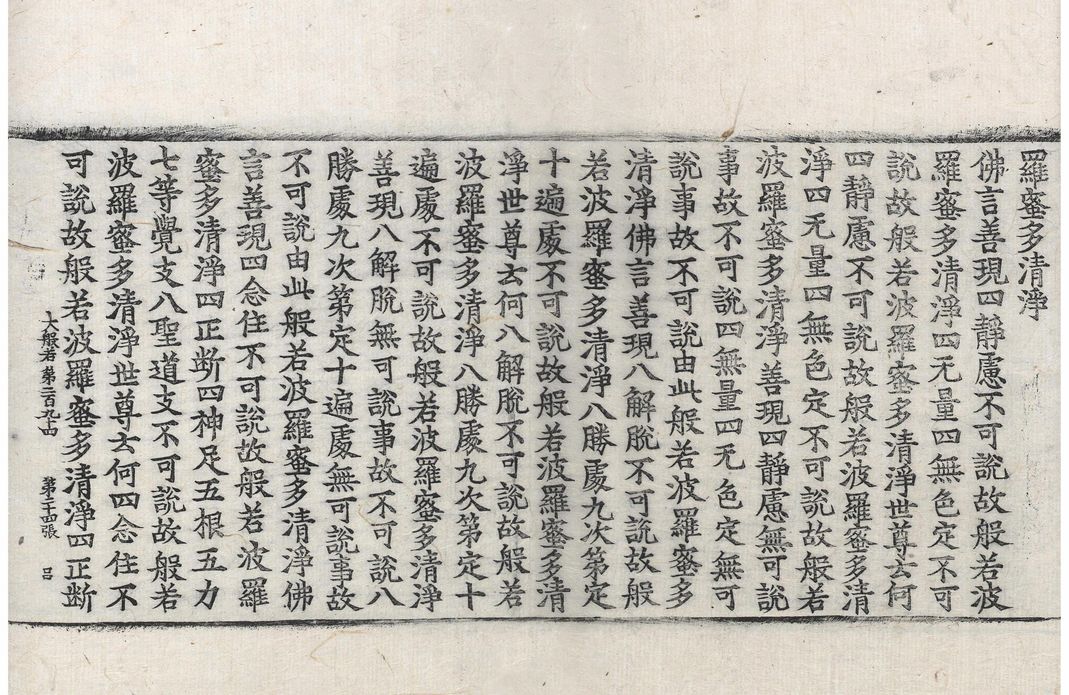 羅蜜多清淨
佛言善現四靜慮不可說故般若波
羅蜜多清淨四无量四無色定不可
說故般若波羅蜜多清淨世尊云何
四靜慮不可說故般若波羅蜜多清
淨四无量四無色定不可說故般若
波羅蜜多清淨善現四靜慮無可說
事故不可說四無量四无色定無可
說事故不可說由此般若波羅蜜多
清淨佛言善現八解脫不可說故般
若波羅蜜多清淨八勝處九次第定
十遍處不可說故般若波羅蜜多清
淨世尊云何八解脫不可說故般若
波羅蜜多清淨八勝處九次第定十
遍處不可說故般若波羅蜜多清淨
善現八解脫無可說事故不可說八
勝處九次第定十遍處無可說事故
不可說由此般若波羅蜜多清淨佛
言善現四念住不可說故般若波羅
蜜多清淨四正断四神足五根五力
七等覺支八聖道支不可說故般若
波羅蜜多清淨世尊云何四念住不
可說故般若波羅蜜多清淨四正断
大般若第二百九十四 第二十四張 呂